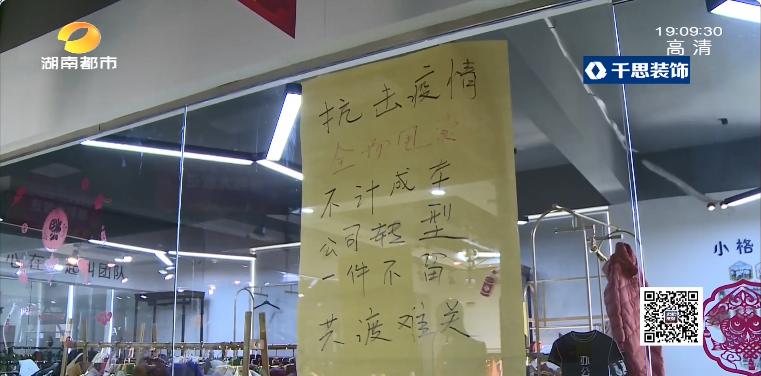 湖南都市
19:09:30
高清
千思装饰
抗击疫情
全场甩卖
不计成本
公司转型
一件不留
共渡难关
起叫团队
小格